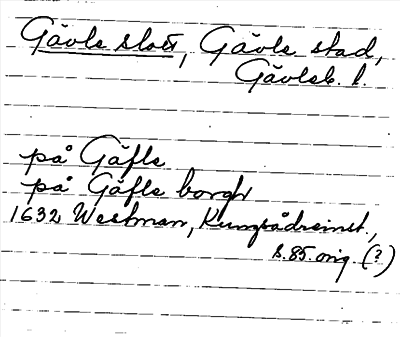 Gävle slott, Gävle stad,
Gävleb. l.
på Gäfle
på Gäfle borgh
1632 Westman, Kungsådreinst.,
s. 85. orig. (?)